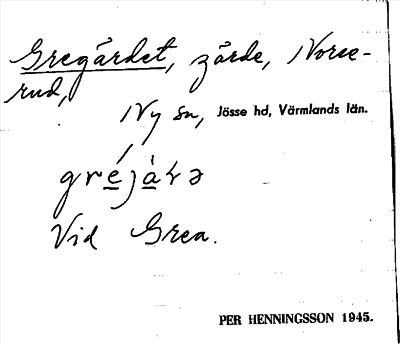 Gregårdet, gärde, Norse-
rud,
Ny sn, Jösse hd, Värmlands län.
Vid Grea.
PER HENNINGSSON 1945.